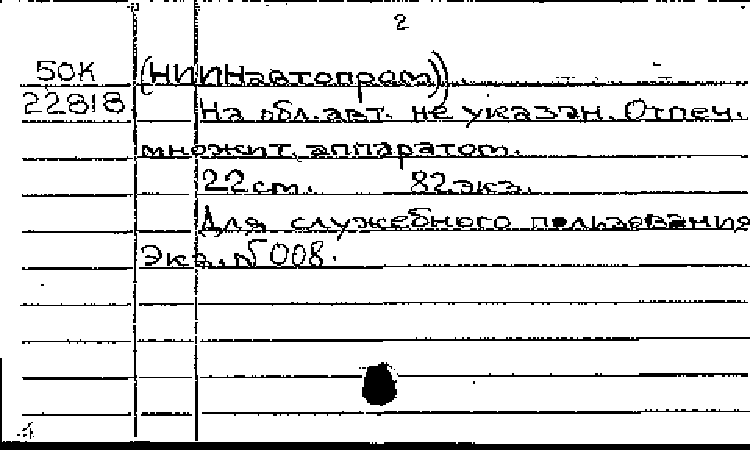 2
50К (НИИНавтопром)).
22818 На обл. авт. не указан. Отпеч.
множит. аппаратом.
22 см. 82 экз.
Для служебного пользования
Экз. № 008.